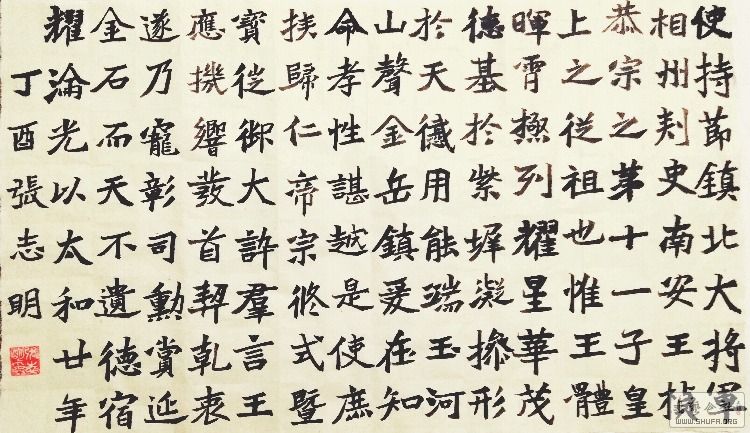 使持節鎮北大將軍
相州刾史南安王楨
恭宗之苐十一子皇
上之從祖也惟王體
暉霄極列耀星華茂
德基於紫墀凝操形
於天儀用能端玉河
山聲金岳鎮爰在知
命孝性諶越是使庶
族歸仁帝宗攸式暨
寳從御大許羣言王
應機響發首契乾衷
遂乃寵彰司勳賞延
金石而天不遺德宿
耀淪光以太和廿年
丁酉張志明
WWW.SHUFA.ORG